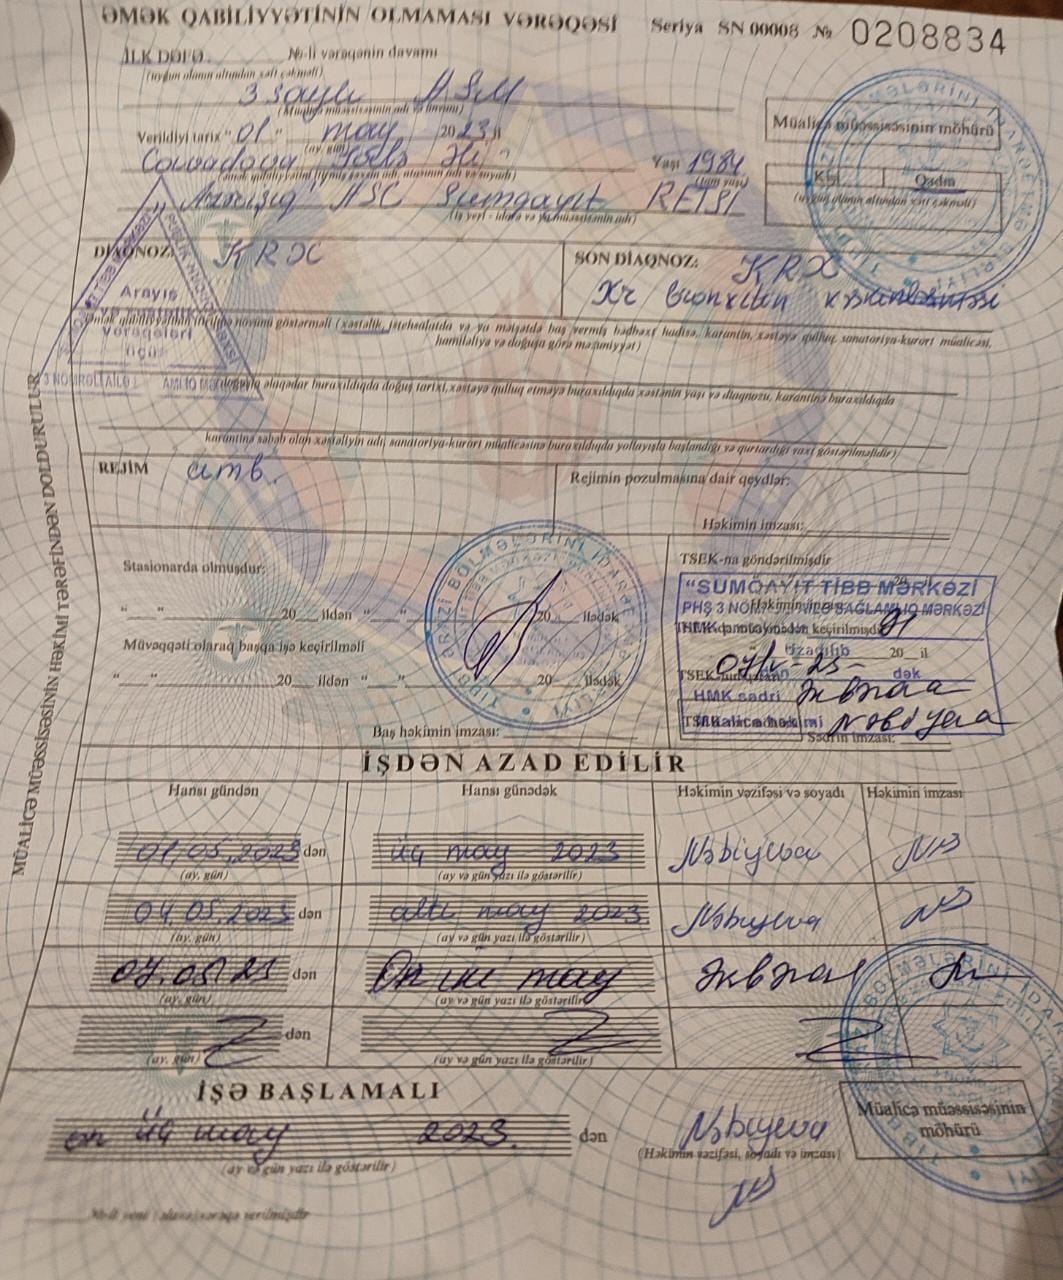 ƏMƏK QABİLİYYƏTİNİN OLMAMASI VƏRƏQƏSİ Seriya SN 00008 № 0208834
İLK DƏFƏ. №-li vərəqənin davamı
(uyğun olanın altından xətt çəkməli)
3 saylı ASM
(Müalicə müəssisəsinin adı və ünvanı)
Müalicə müəssisəsinin möhürü
Verildiyi tarix "01" may 2023 il
(ay, gün)
Yaşı 1984
(tam yaşı)
Kişi Qadın
(uyğun olanın altından xətt çəkməli)
"Azərişıq" ASC Sumqayıt RETSİ
(iş yeri - idarə və ya müəssisənin adı)
DİAQNOZ: KRX
SON DİAQNOZ: KRX
Xr bronxitin kəskinləşməsi
Arayış
və xəstəlik
vərəqələri
üçün
Əmək qabiliyyətinin itirilmə növünü göstərməli (xəstəlik, istehsalatda və ya məişətdə baş vermiş bədbəxt hadisə, karantin, xəstəyə qulluq, sanatoriya-kurort müalicəsi,
hamiləliyə və doğuşa görə məzuniyyət)
doğuşla əlaqədar buraxıldıqda doğuş tarixi, xəstəyə qulluq etməyə buraxıldıqda xəstənin yaşı və diaqnozu, karantinə buraxıldıqda
karantinə səbəb olan xəstəliyin adı, sanatoriya-kurort müalicəsinə buraxıldıqda yollayışla başlandığı və qurtardığı vaxt göstərilməlidir)
REJİM amb.
Rejimin pozulmasına dair qeydlər:
Həkimin imzası:
Stasionarda olmuşdur:
TSEK-na göndərilmişdir
"SUMQAYIT TİBB MƏRKƏZİ
PHŞ 3 NÖMRƏLİ AİLƏ SAĞLAMLIQ MƏRKƏZİ
" " 20 ildən " " 20 ilədək
Müvəqqəti olaraq başqa işə keçirilməli
Uzadılıb 20 il
dək
" " 20 ildən " " 20 ilədək
HMK sədri
Müalicə həkimi Nəbiyeva
Baş həkimin imzası:
Sədrin imzası:
MÜALİCƏ MÜƏSSİSƏSİNİN HƏKİMİ TƏRƏFİNDƏN DOLDURULUR
İŞDƏN AZAD EDİLİR
Hansı gündən Hansı günədək Həkimin vəzifəsi və soyadı Həkimin imzası
01.05.2023 dən üç may 2023 Nəbiyeva
(ay, gün) (ay və gün yazı ilə göstərilir)
04.05.2023 dən altı may 2023 Nəbiyeva
(ay, gün) (ay və gün yazı ilə göstərilir)
07.05.23 dən On iki may
(ay, gün) (ay və gün yazı ilə göstərilir)
Z dən Z Z
(ay, gün) (ay və gün yazı ilə göstərilir)
İŞƏ BAŞLAMALI
on üç may 2023 dən Nəbiyeva
(ay və gün yazı ilə göstərilir) (Həkimin vəzifəsi, soyadı və imzası)
Müalicə müəssisəsinin
möhürü
№-li yeni vərəqə verilmişdir